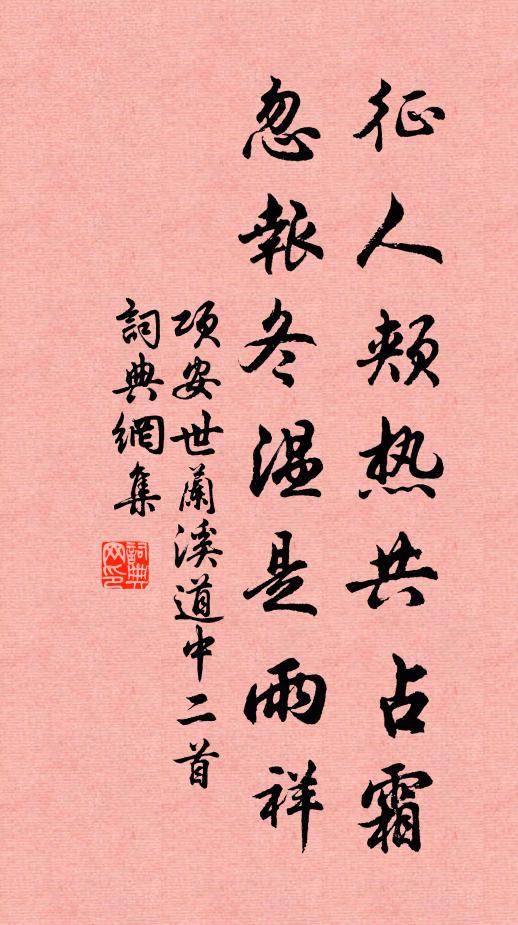 征人颊热共占霜
忽報冬温是雨祥
项安世蘭溪道中二首
詞典網集
詞典網印